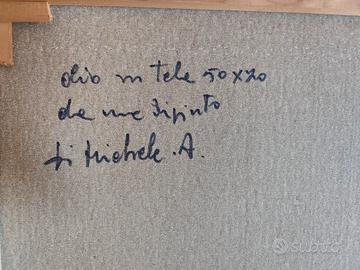 olio su tela 50x70
da me dipinto
di Michele. A.
subito